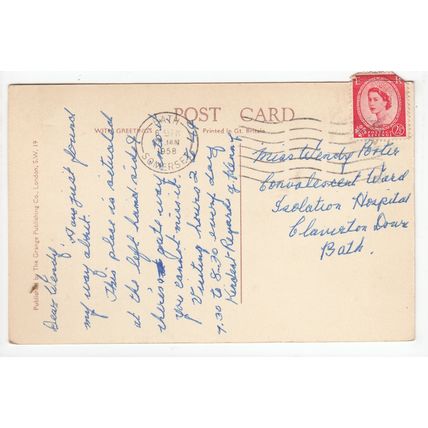 POST CARD
WITH GREETINGS
Printed in Gt. Britain
Published by The Grange Publishing Co., London, S.W. 19
BATH
JAN
1958
SOMERSET
Dear Wendy. Have just found
my way about.
This place is situated
at the left hand side
there's
you can't miss it.
Visiting hours 2 to 4
7.30 to 8-30 every day
Kindest Regards
Miss Wendy Porter
Convalescent Ward
Isolation Hospital
Claverton Down
Bath.